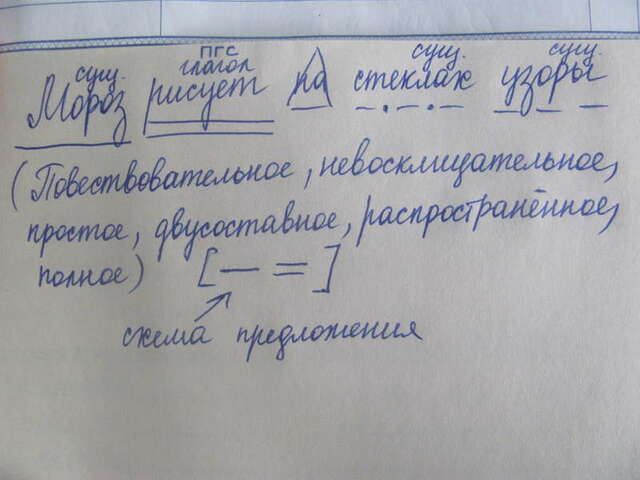 сущ. ПГС глагол сущ. сущ.
Мороз рисует на стеклах узоры
(Повествовательное, невосклицательное,
простое, двусоставное, распространённое,
полное) [— =]
схема предложения